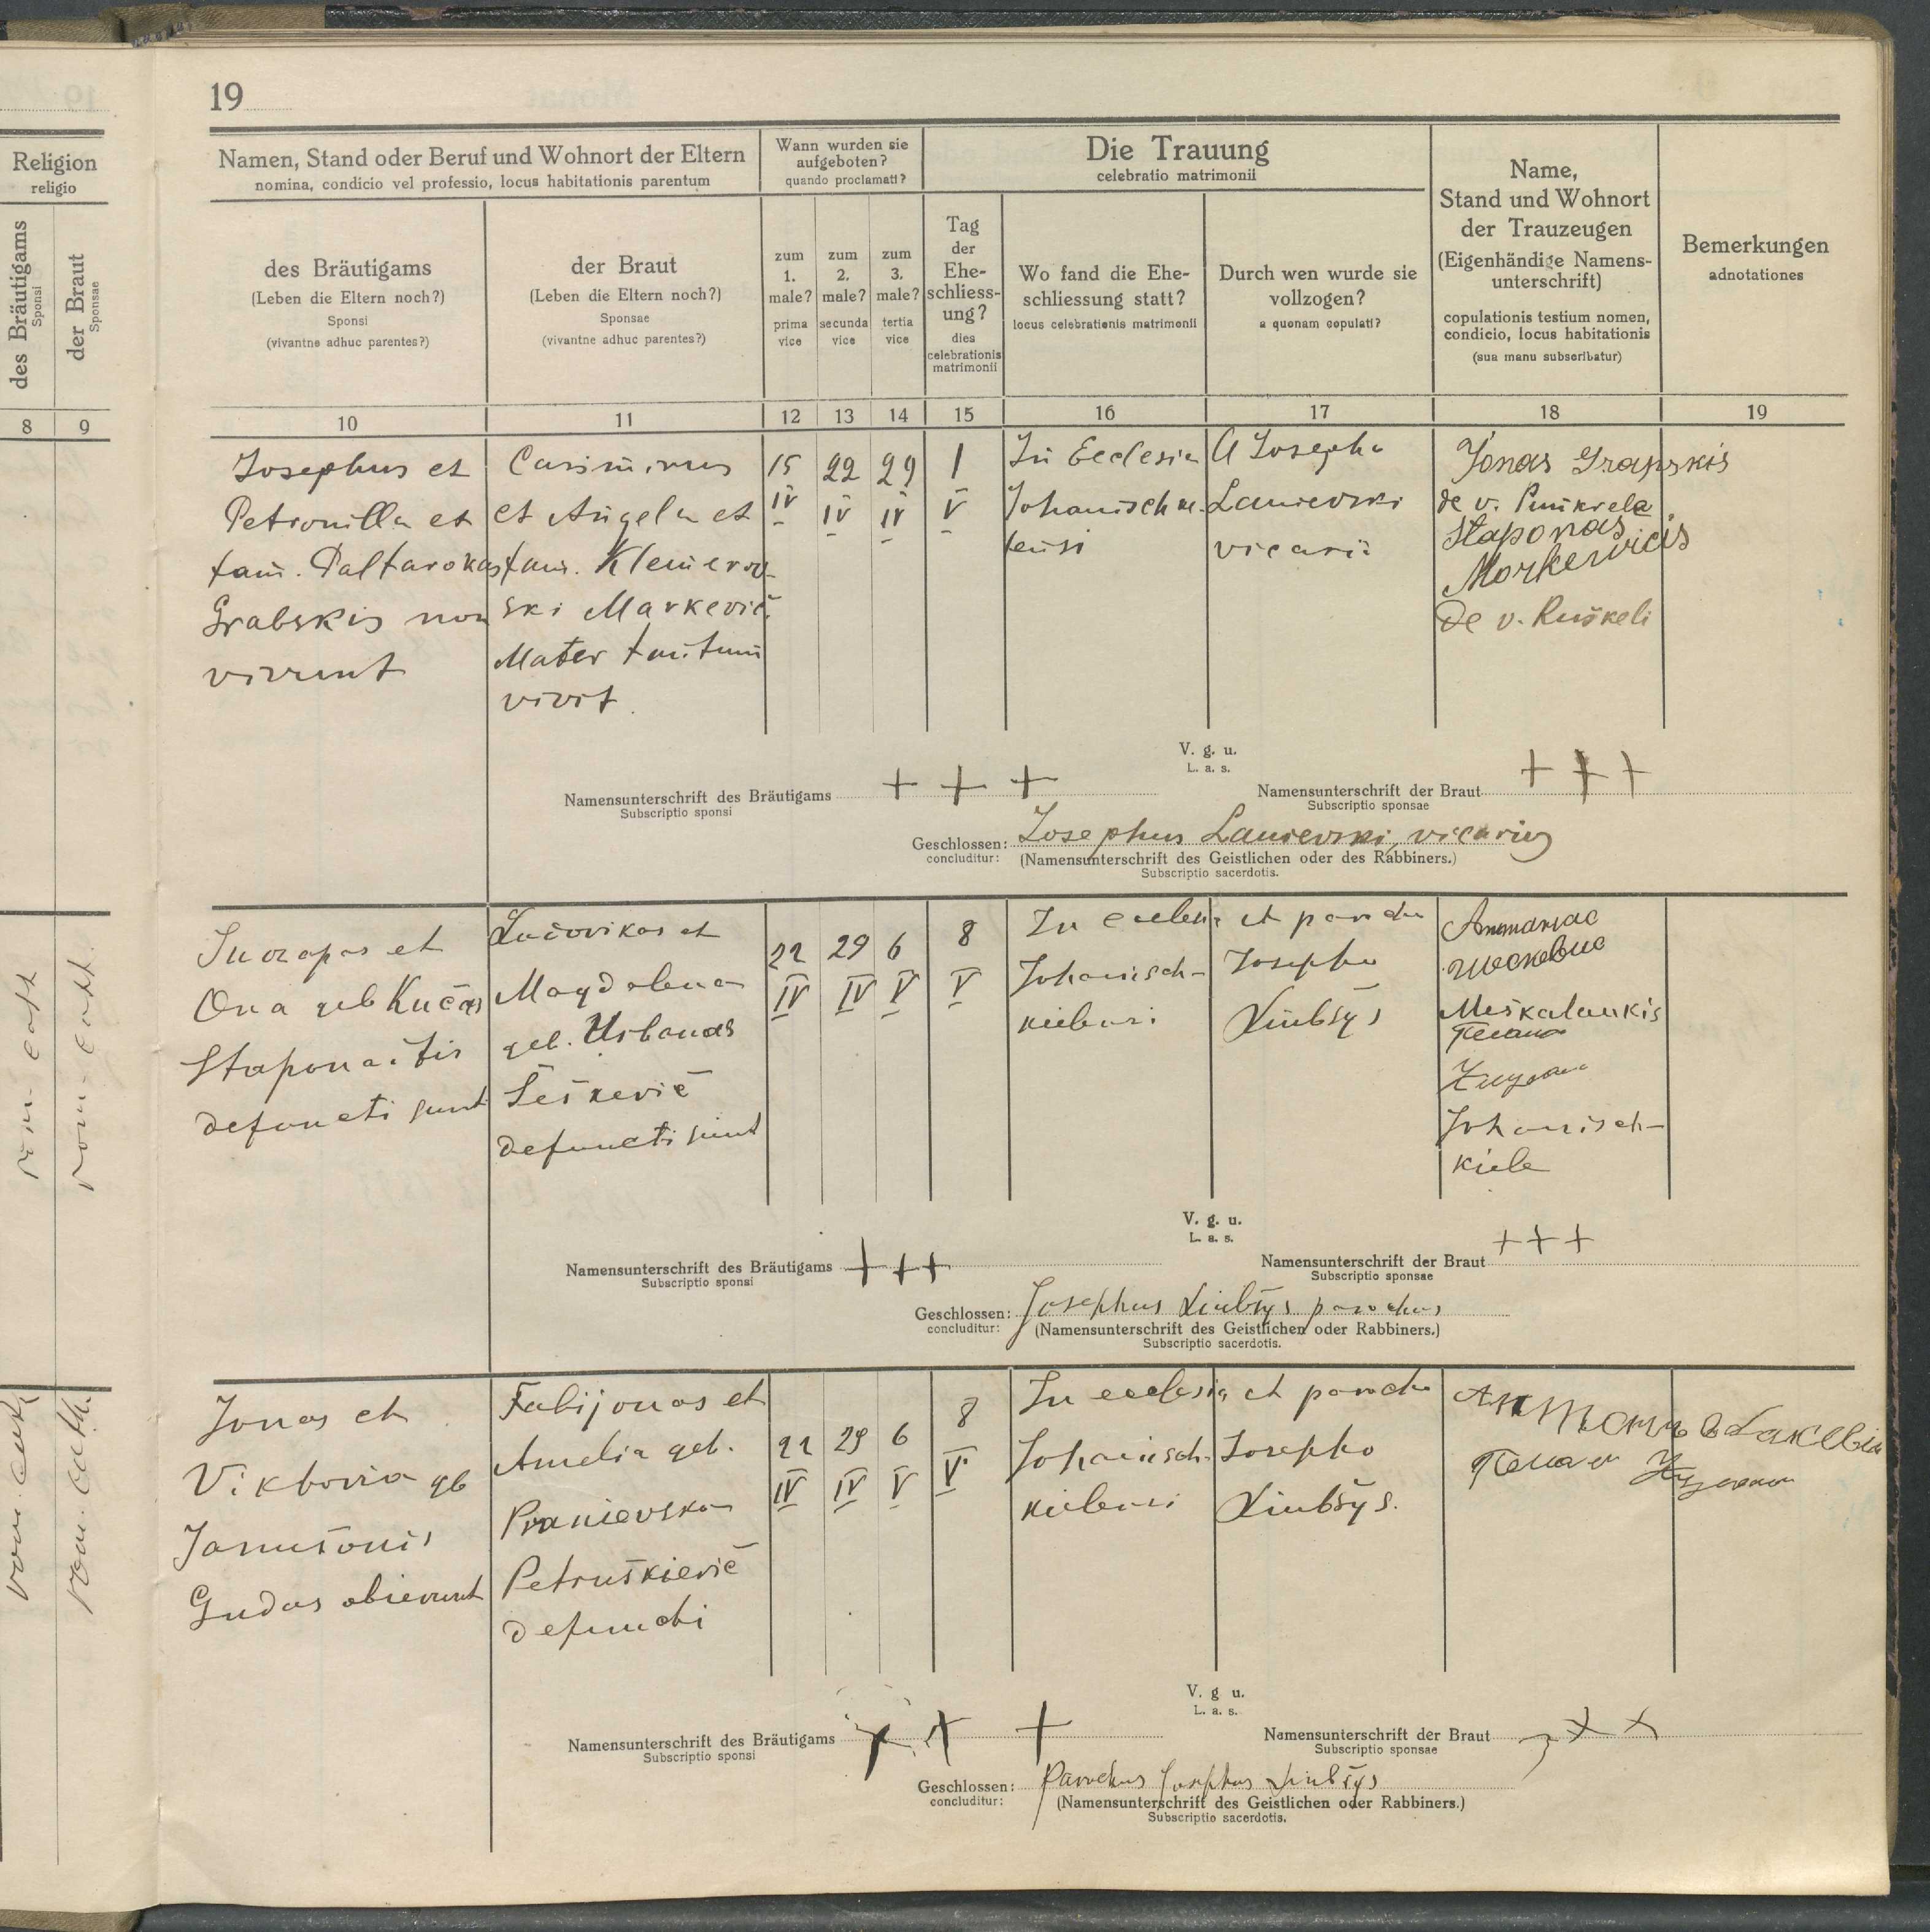 19
Religion
religio
des Bräutigams
Sponsi
der Braut
Sponsae
8
9
rom. cath.
rom. cath.
rom. cath.
rom. cath.
Namen, Stand oder Beruf und Wohnort der Eltern
nomina, condicio vel professio, locus habitationis parentum
Wann wurden sie
aufgeboten?
quando proclamati?
Die Trauung
celebratio matrimonii
Name,
Stand und Wohnort
der Trauzeugen
(Eigenhändige Namens-
unterschrift)
copulationis testium nomen,
condicio, locus habitationis
(sua manu subscribatur)
Bemerkungen
adnotationes
des Bräutigams
(Leben die Eltern noch?)
Sponsi
(vivantne adhuc parentes?)
der Braut
(Leben die Eltern noch?)
Sponsae
(vivantne adhuc parentes?)
zum
1.
male?
prima
vice
zum
2.
male?
secunda
vice
zum
3.
male?
tertia
vice
Tag
der
Ehe-
schliess-
ung?
dies
celebrationis
matrimonii
Wo fand die Ehe-
schliessung statt?
locus celebrationis matrimonii
Durch wen wurde sie
vollzogen?
a quonam copulati?
10
11
12
13
14
15
16
17
18
19
Josephus et
Petronilla et
fam. Paltarokas
Grabskis non
vivunt
Casimirus
et Angela et
fam. Klemerov-
ski Markevič.
Mater tantum
vivit.
15
IV
22
IV
29
IV
1
V
In Ecclesia
Johanischke-
lensi
A Josepho
Lanievski
vicarii
Jonas Grapskis
de v.
Staponas
Morkervicis
de v. Ruškeli
V. g. u.
L. a. s.
Namensunterschrift des Bräutigams + + +
Subscriptio sponsi
Namensunterschrift der Braut + + +
Subscriptio sponsae
Geschlossen: Josephus Lanievski, vicarius
concluditur: (Namensunterschrift des Geistlichen oder des Rabbiners.)
Subscriptio sacerdotis.
Juozapas et
Ona geb Kučas
Staponaitis
defuncti sunt
Liudovikas et
Magdalena
geb. Urbanas
Šeškevič
defuncti sunt
22
IV
29
IV
6
V
8
V
In ecclesia
Johanisch-
kielensi
et parocho
Josepho
Liubšys
Meškalaukis
Johanisch-
kiele
V. g. u.
L. a. s.
Namensunterschrift des Bräutigams +++
Subscriptio sponsi
Namensunterschrift der Braut +++
Subscriptio sponsae
Geschlossen: Josephus Liubšys parochus
concluditur: (Namensunterschrift des Geistlichen oder Rabbiners.)
Subscriptio sacerdotis.
Jonas et
Viktoria gb
Janušonis
Gudas obierunt
Fabijonas et
Amelia geb.
Pranievska
Petruškievič
defuncti
22
IV
29
IV
6
V
8
V
In ecclesia
Johanisch-
kielensi
et parocho
Josepho
Liubšys.
V. g u.
L. a. s.
Namensunterschrift des Bräutigams + + +
Subscriptio sponsi
Namensunterschrift der Braut + + +
Subscriptio sponsae
Geschlossen: Parochus Josephus Liubšys
concluditur: (Namensunterschrift des Geistlichen oder Rabbiners.)
Subscriptio sacerdotis.